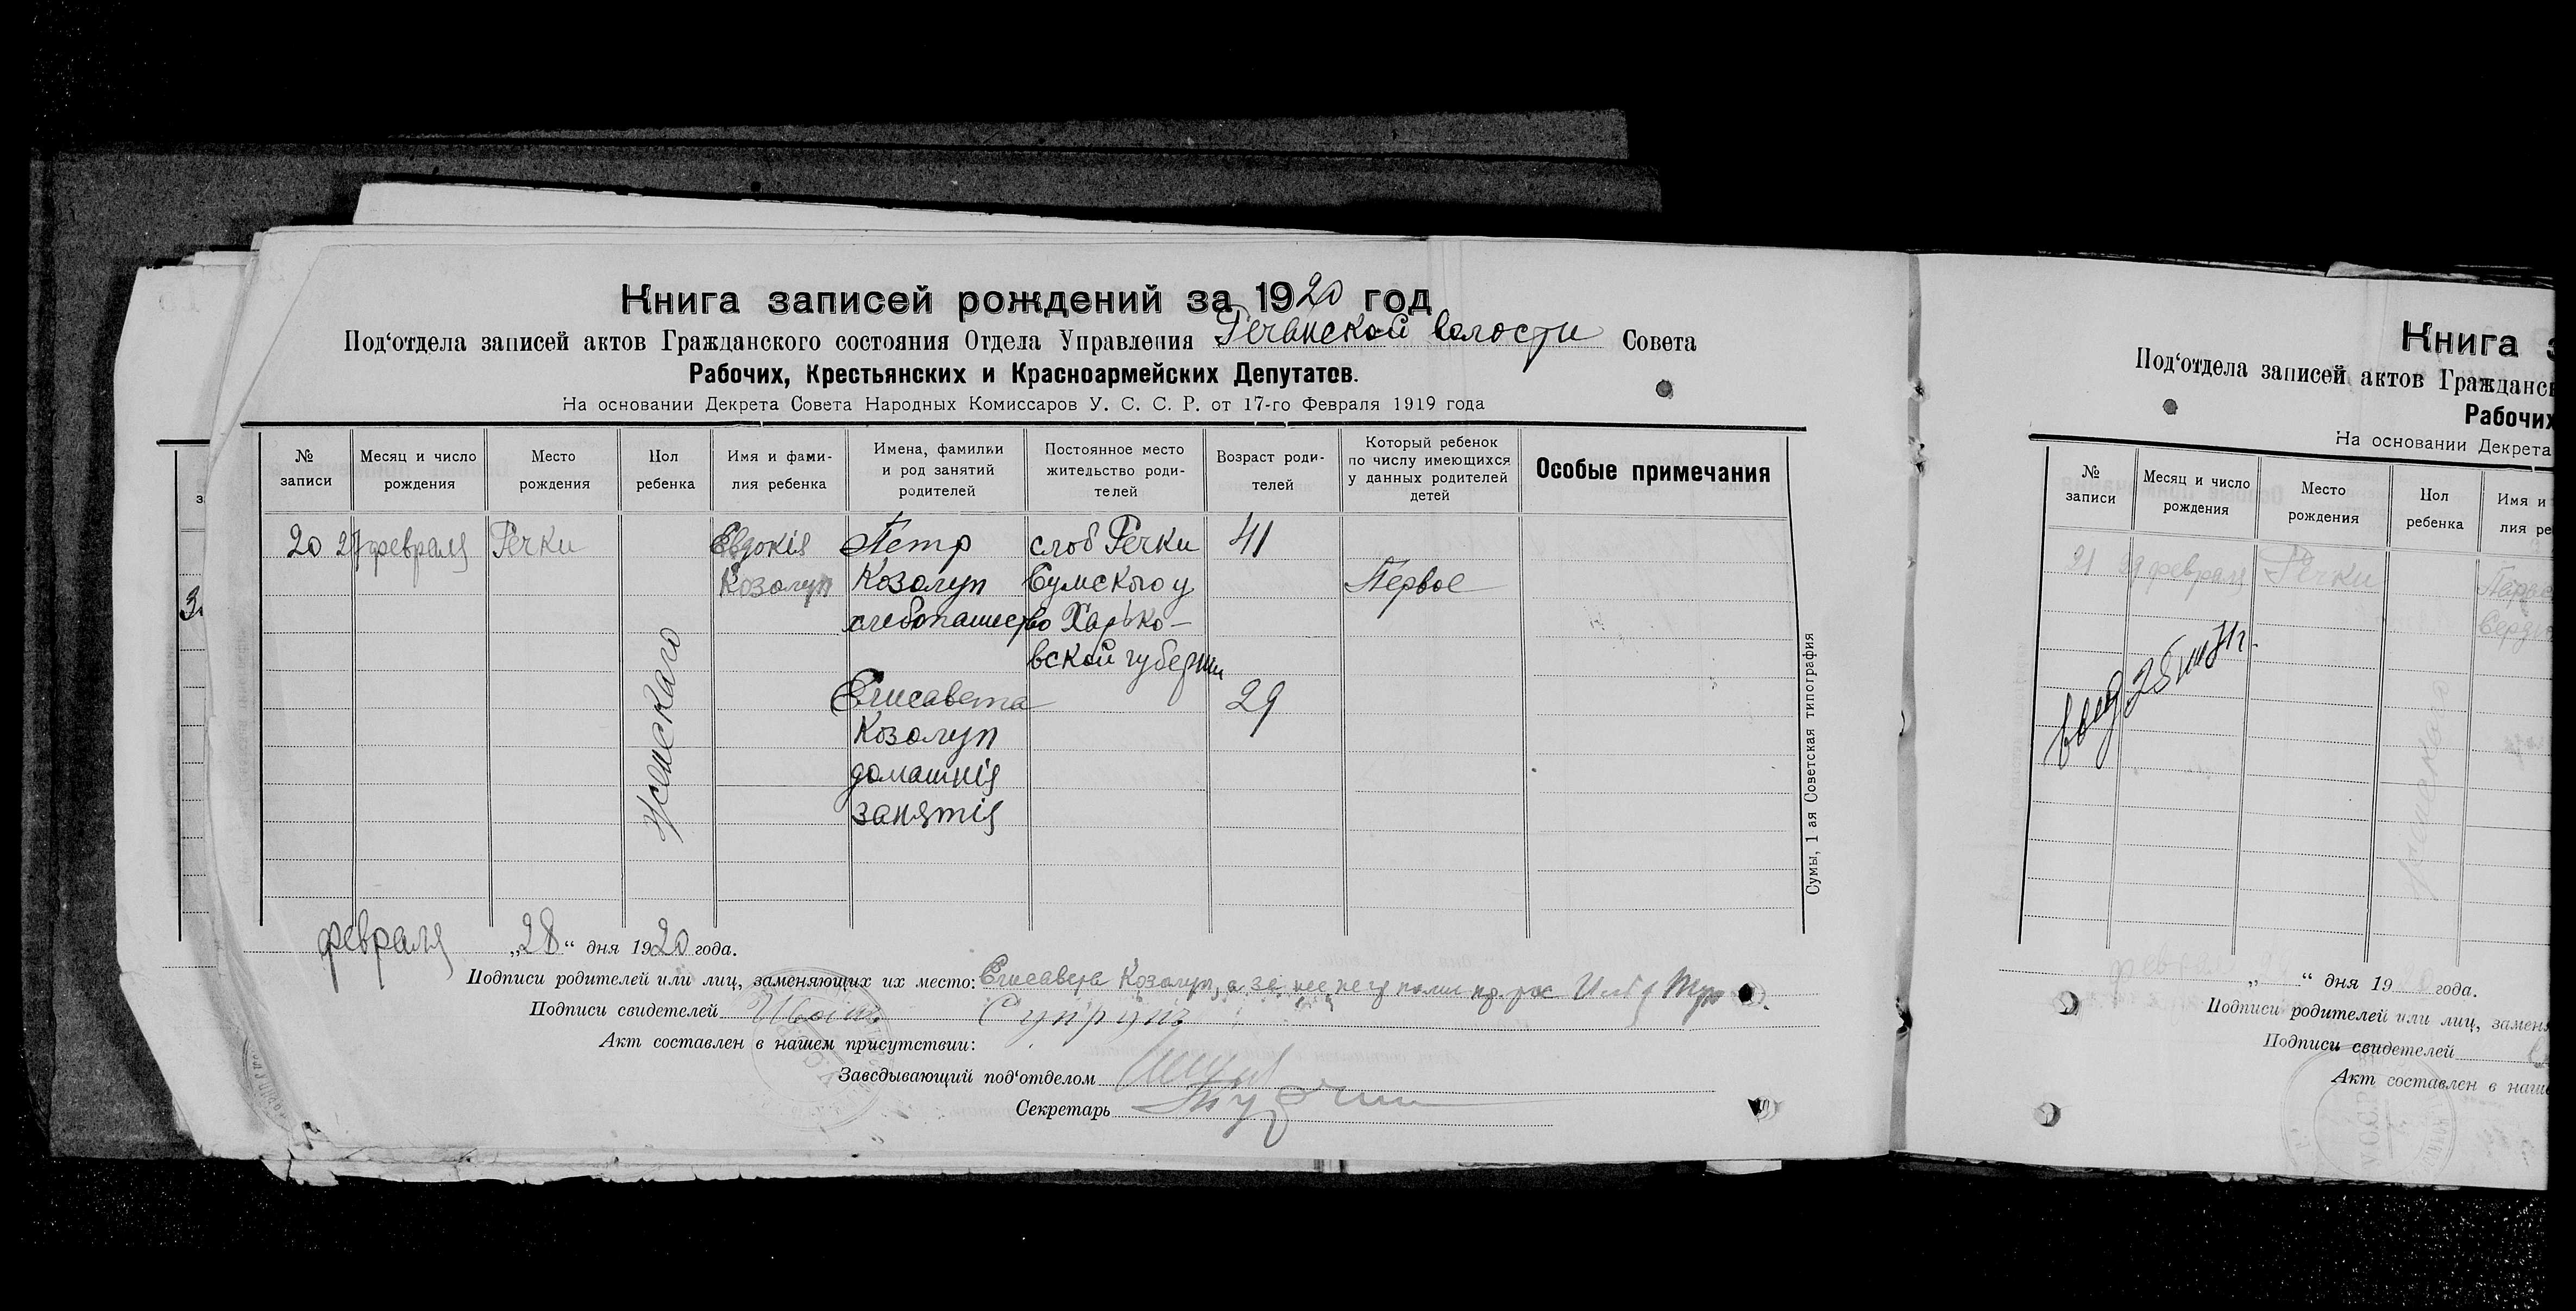 Книга записей рождений за 1920 год
Под‘отдела записей актов Гражданского состояния Отдела Управления Речанской волости Совета
Рабочих, Крестьянских и Красноармейских Депутатов.
На основании Декрета Совета Народных Комиссаров У. С. С. Р. от 17-го Февраля 1919 года
№ записи
Месяц и число рождения
Место рождения
Пол ребенка
Имя и фами-
лия ребенка
Имена, фамилии
и род занятий
родителей
Постоянное место
жительство роди-
телей
Возраст роди-
телей
Который ребенок
по числу имеющихся
у данных родителей
детей
Особые примечания
20
27 февраля
Речки
Женскаго
Евдокія
Козолуп
Петр
Козолуп
хлебопашество
Елисавета
Козолуп
домашнія
занятія
слоб Речки
Сумского у
Харько-
вской губернии
41
29
Первое
февраля „28“ дня 1920 года.
Подписи родителей или лиц, заменяющих их место: Елисавета Козолуп, а за нее
Подписи свидетелей Супрунъ
Акт составлен в нашем присутствии:
Заведывающий под‘отделом
Секретарь
Сумы, 1 ая Советская типография
Книга з
Под‘отдела записей актов Гражданс
Рабочих
На основании Декрета
№
записи
Месяц и число
рождения
Место
рождения
Пол
ребенка
Имя и
лия ре
21
29 февраля
Речки
Женскаго
„ “ дня 1920 года.
Подписи родителей или лиц, замен
Подписи свидетелей
Акт составлен в наше